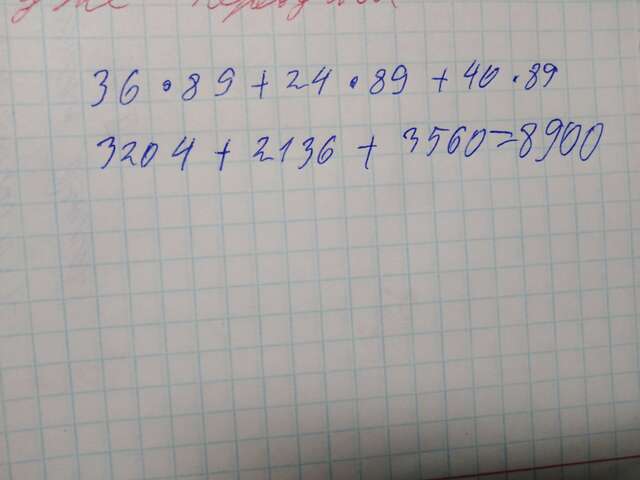 уже
36 · 89 + 24 · 89 + 40 · 89
3204 + 2136 + 3560 = 8900